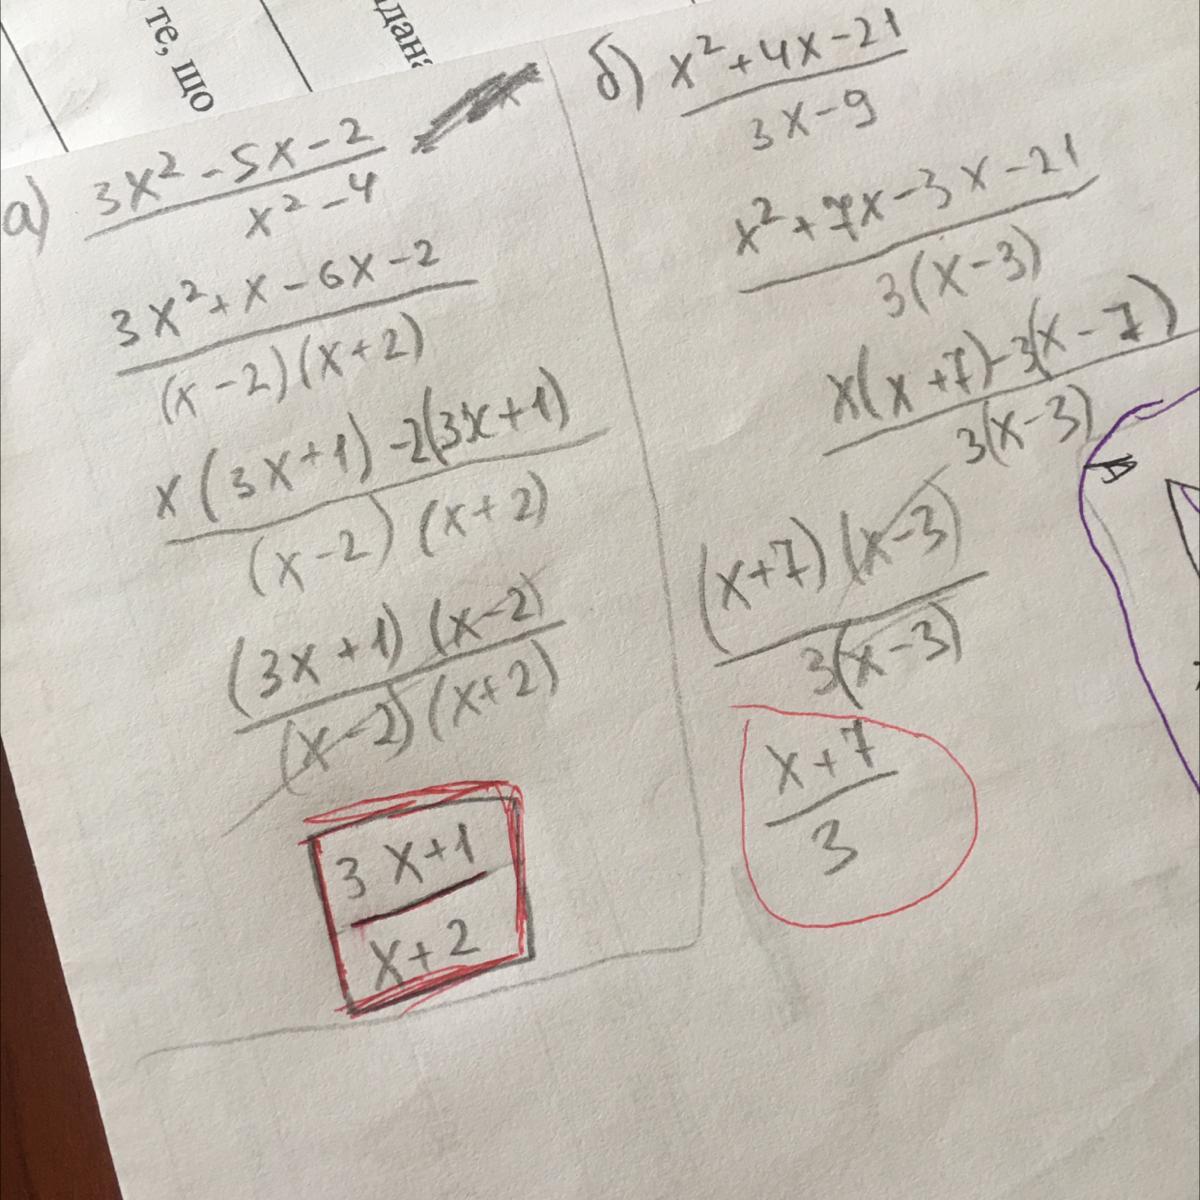 те, що
а)
3x² - 5x - 2
x² - 4
3x² + x - 6x - 2
(x - 2)(x + 2)
x(3x + 1) - 2(3x + 1)
(x - 2) (x + 2)
(3x + 1) (x - 2)
(x - 2) (x + 2)
3x + 1
x + 2
б)
x² + 4x - 21
3x - 9
x² + 7x - 3x - 21
3(x - 3)
x(x + 7) - 3(x - 7)
3(x - 3)
(x + 7) (x - 3)
3(x - 3)
x + 7
3